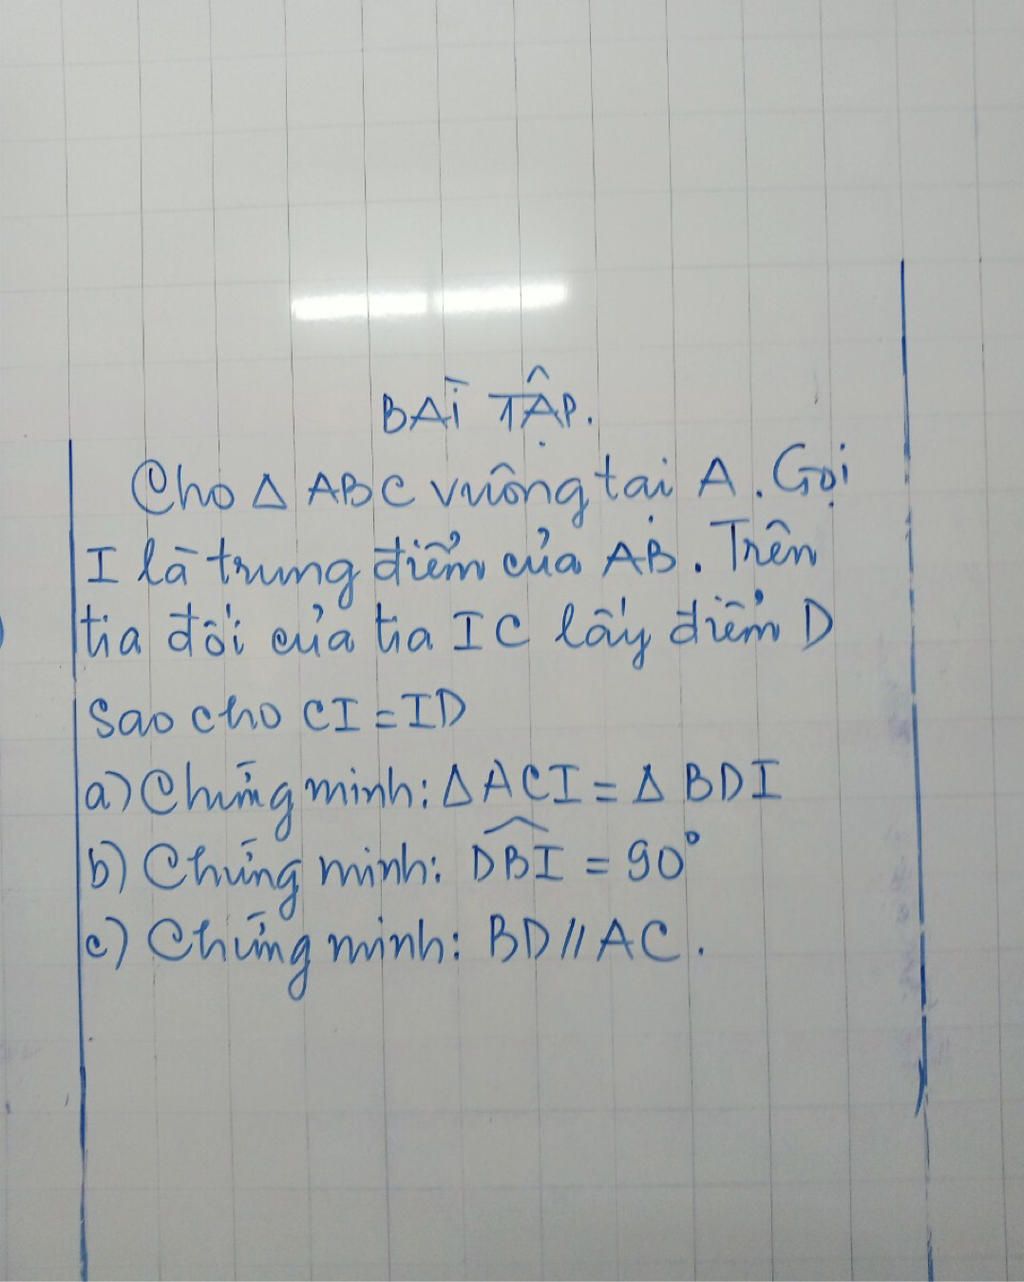 BÀI TẬP.
Cho Δ ABC vuông tại A. Gọi
I là trung điểm của AB. Trên
tia đối của tia IC lấy điểm D
Sao cho CI = ID
a) Chứng minh: Δ ACI = Δ BDI
b) Chứng minh: \widehat{DBI} = 90°
c) Chứng minh: BD // AC.